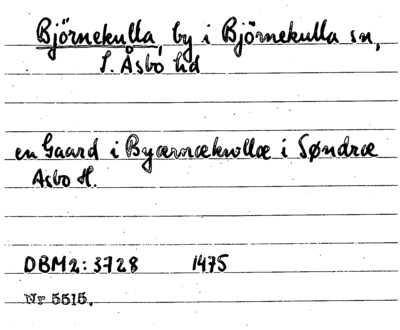 Björnekulla, by i Björnekulla sn,
S. Åsbo hd
en Gaard i Byærnækwllæ i Søndræ
Asbo H.
DBM2: 3728 1475
Nr 5515.